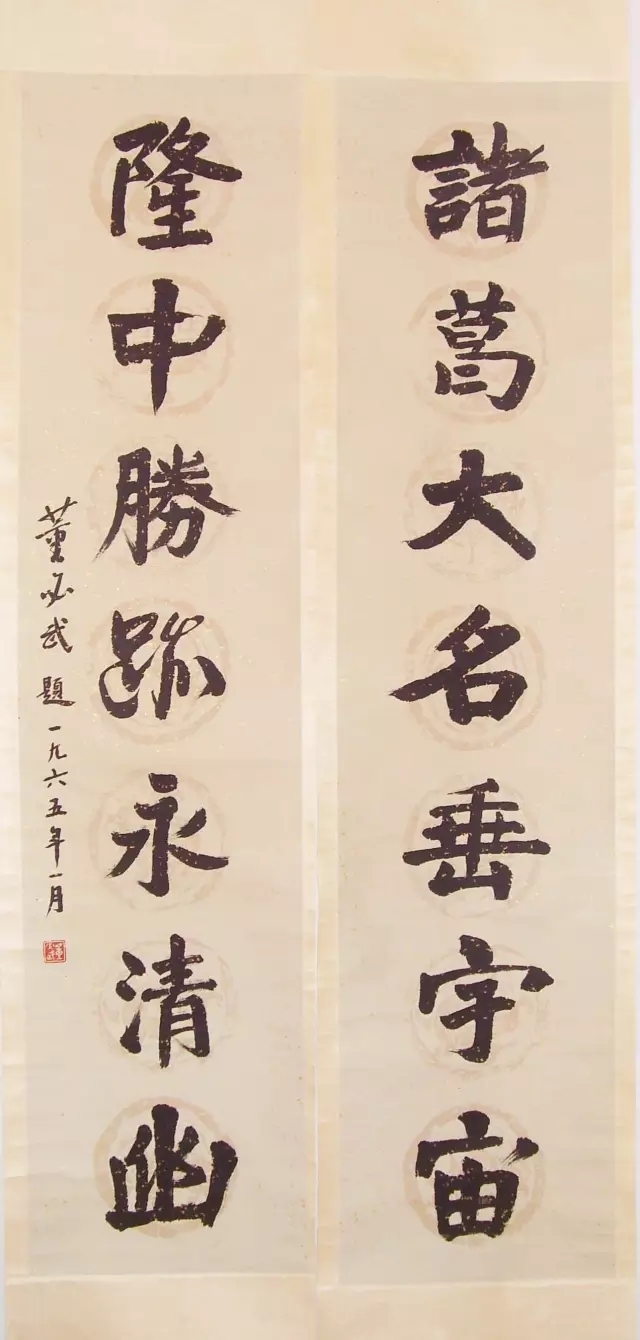 諸葛大名垂宇宙
隆中勝跡永清幽
董必武 題 一九六五年一月